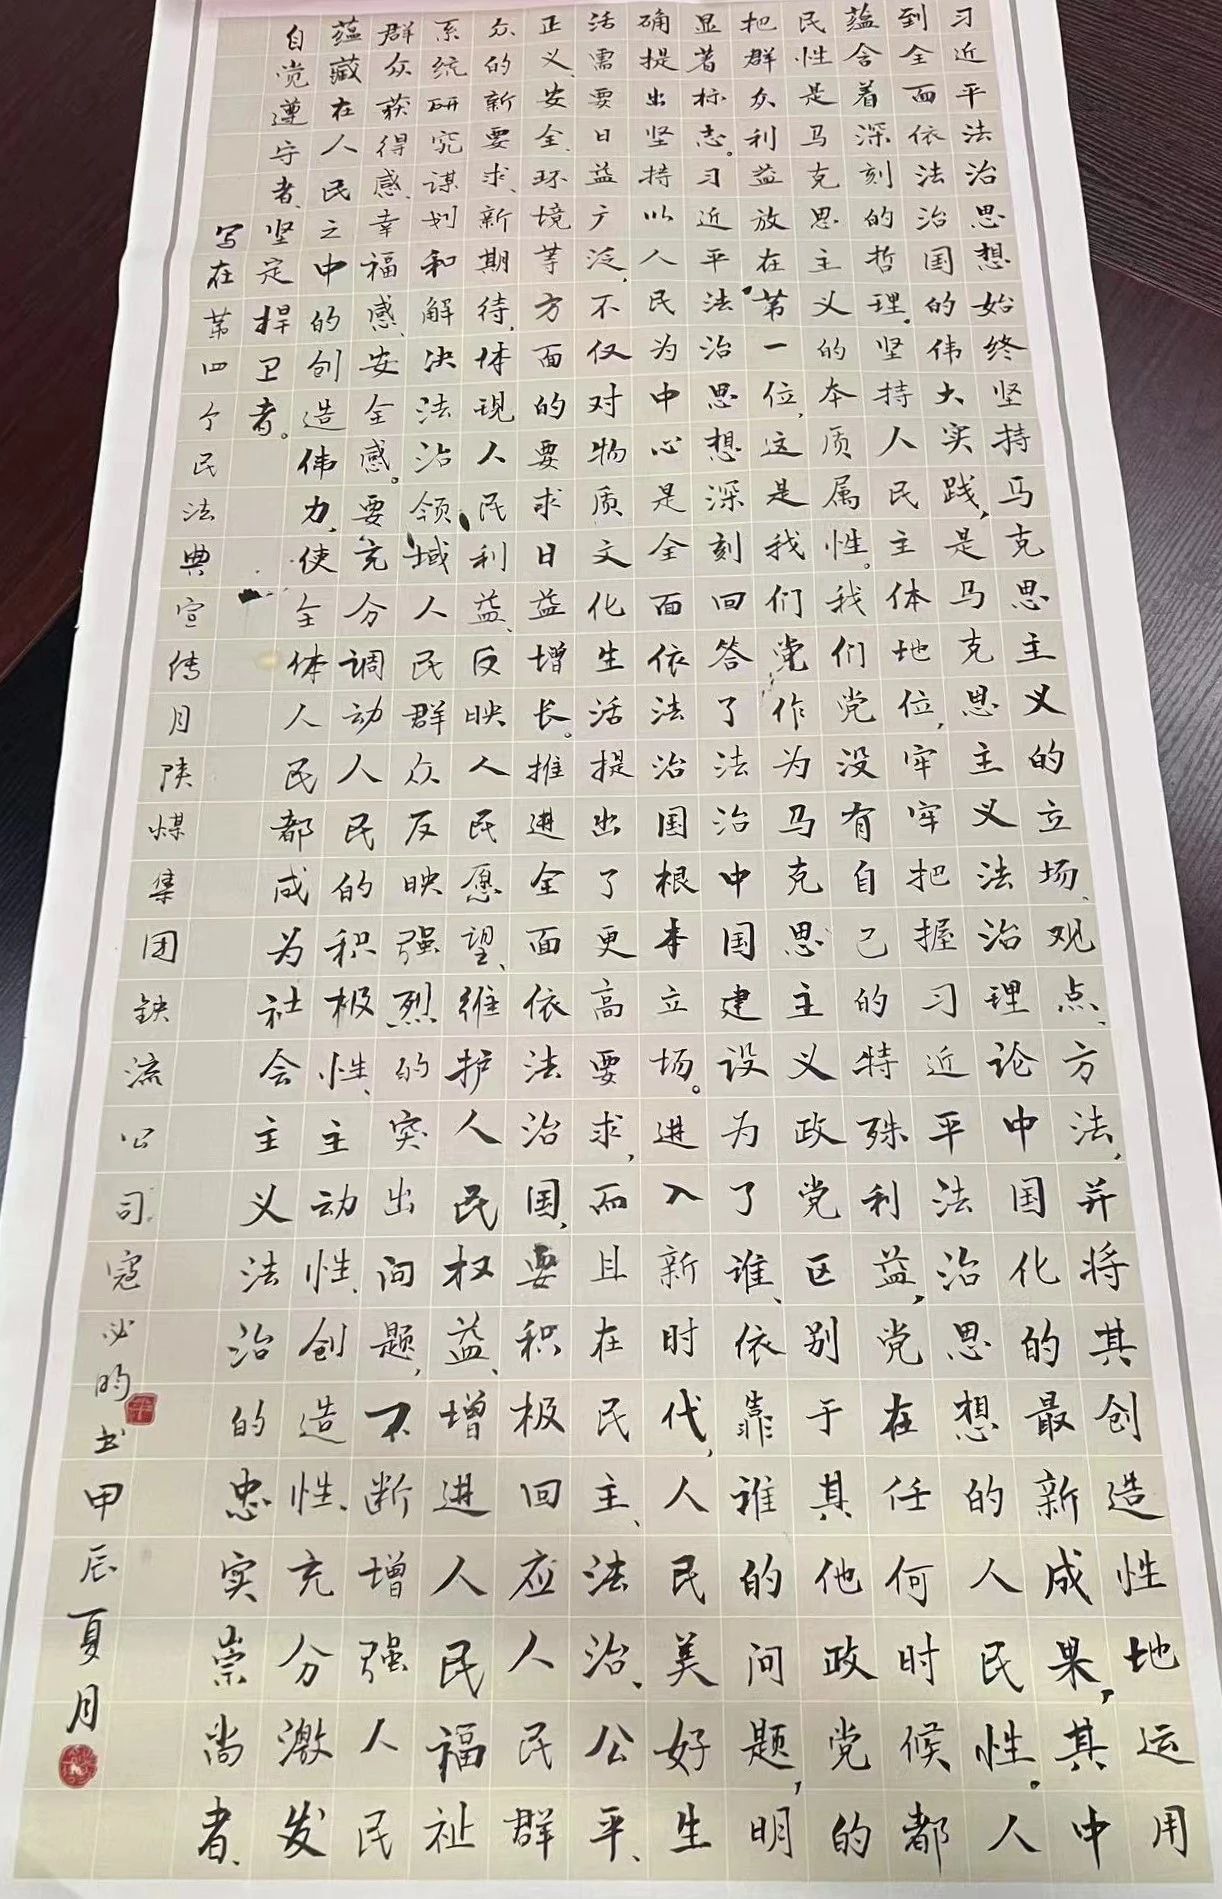 习近平法治思想始终坚持马克思主义的立场、观点、方法,并将其创造性地运用
到全面依法治国的伟大实践,是马克思主义法治理论中国化的最新成果,其中
蕴含着深刻的哲理。坚持人民主体地位,牢牢把握习近平法治思想的人民性。人
民性是马克思主义的本质属性。我们党没有自己的特殊利益,党在任何时候都
把群众利益放在第一位,这是我们党作为马克思主义政党区别于其他政党的
显著标志。习近平法治思想深刻回答了法治中国建设为了谁、依靠谁的问题,明
确提出坚持以人民为中心是全面依法治国根本立场。进入新时代,人民美好生
活需要日益广泛,不仅对物质文化生活提出了更高要求,而且在民主、法治、公平、
正义、安全、环境等方面的要求日益增长。推进全面依法治国,要积极回应人民群
众的新要求、新期待,体现人民利益、反映人民愿望、维护人民权益、增进人民福祉
系统研究谋划和解决法治领域人民群众反映强烈的突出问题,不断增强人民
群众获得感、幸福感、安全感。要充分调动人民的积极性、主动性、创造性、充分激发
蕴藏在人民之中的创造伟力,使全体人民都成为社会主义法治的忠实崇尚者、
自觉遵守者、坚定捍卫者。
写在第四个民法典宣传月陕煤集团铁流公司寇必昀书甲辰夏月